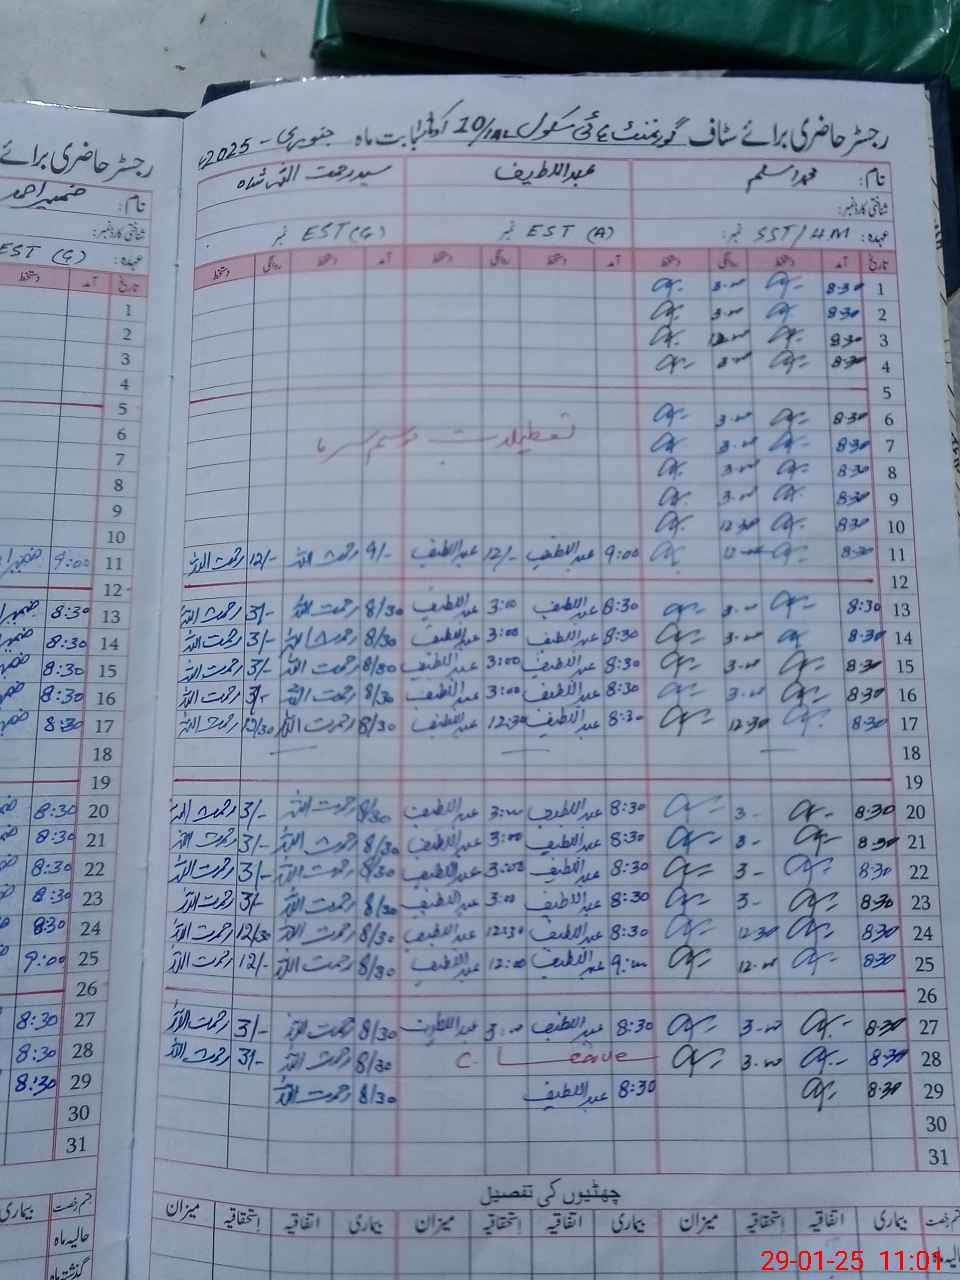 رجسٹر حاضری برائے سٹاف گورنمنٹ ہائی سکول 10/1AL اوکاڑا بابت ماہ جنوری - 2025ء
نام: محمد اسلم عبداللطیف سید رحمت اللہ شاہ
شناختی کارڈ نمبر:
عہدہ: SST/HM نمبر: EST (A) نمبر EST (G) نمبر
تاریخ آمد دستخط روانگی دستخط آمد دستخط روانگی دستخط آمد دستخط روانگی دستخط
1 8:30 3.00
2 8:30 3.00
3 8:30 12.00
4 8:30 3.00
5
6 8:30 3.00
تعطیلات موسم سرما
7 8:30 3.00
8 8:30 3.00
9 8:30 3.00
10 8:30 12:30
11 8:30 12.00 9:00 عبداللطیف 12/- عبداللطیف 9/- رحمت اللہ 12/- رحمت اللہ
12
13 8:30 3.00 8:30 عبداللطیف 3:00 عبداللطیف 8/30 رحمت اللہ 3/- رحمت اللہ
14 8:30 3.00 8:30 عبداللطیف 3:00 عبداللطیف 8/30 رحمت اللہ 3/- رحمت اللہ
15 8:30 3.00 8:30 عبداللطیف 3:00 عبداللطیف 8/30 رحمت اللہ 3/- رحمت اللہ
16 8:30 3.00 8:30 عبداللطیف 3:00 عبداللطیف 8/30 رحمت اللہ 3/- رحمت اللہ
17 8:30 12.30 8:30 عبداللطیف 12:30 عبداللطیف 8/30 رحمت اللہ 12/30 رحمت اللہ
18
19
20 8:30 3- 8:30 عبداللطیف 3:00 عبداللطیف 8/30 رحمت اللہ 3/- رحمت اللہ
21 8:30 3- 8:30 عبداللطیف 3:00 عبداللطیف 8/30 رحمت اللہ 3/- رحمت اللہ
22 8:30 3- 8:30 عبداللطیف 3:00 عبداللطیف 8/30 رحمت اللہ 3/- رحمت اللہ
23 8:30 3- 8:30 عبداللطیف 3:00 عبداللطیف 8/30 رحمت اللہ 3/- رحمت اللہ
24 8:30 12.30 8:30 عبداللطیف 12:30 عبداللطیف 8/30 رحمت اللہ 12/30 رحمت اللہ
25 8:30 12.00 9:00 عبداللطیف 12:00 عبداللطیف 8/30 رحمت اللہ 12/- رحمت اللہ
26
27 8:30 3.00 8:30 عبداللطیف 3:00 عبداللطیف 8/30 رحمت اللہ 3/- رحمت اللہ
28 8:30 3.00 C. Leave 8/30 رحمت اللہ 3/- رحمت اللہ
29 8:30 8:30 عبداللطیف 8/30 رحمت اللہ
30
31
چھٹیوں کی تفصیل
قسم رخصت بیماری اتفاقیہ استحقاقیہ میزان بیماری اتفاقیہ استحقاقیہ میزان بیماری اتفاقیہ استحقاقیہ میزان
حالیہ ماہ
گذشتہ ماہ
رجسٹر حاضری برائے
نام: ضمیر احمد
شناختی کارڈ نمبر:
عہدہ: EST (G)
تاریخ آمد دستخط
1
2
3
4
5
6
7
8
9
10
11 9:00
12
13 8:30
14 8:30
15 8:30
16 8:30
17 8:30
18
19
20 8:30
21 8:30
22 8:30
23 8:30
24 8:30
25 9:00
26
27 8:30
28 8:30
29 8:30
30
31
قسم رخصت بیماری
حالیہ ماہ
گذشتہ ماہ
29-01-25 11:01